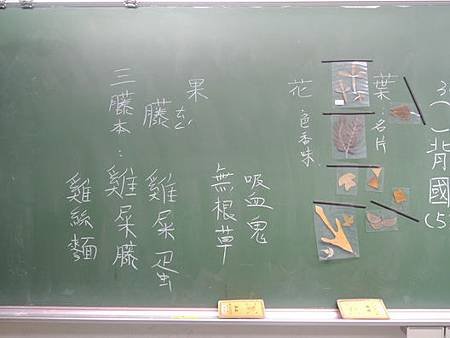 背國
葉名片
花色香味
果
吸血鬼
無根草
藤
雞屎蛋
三藤本：雞屎藤
雞絲麵